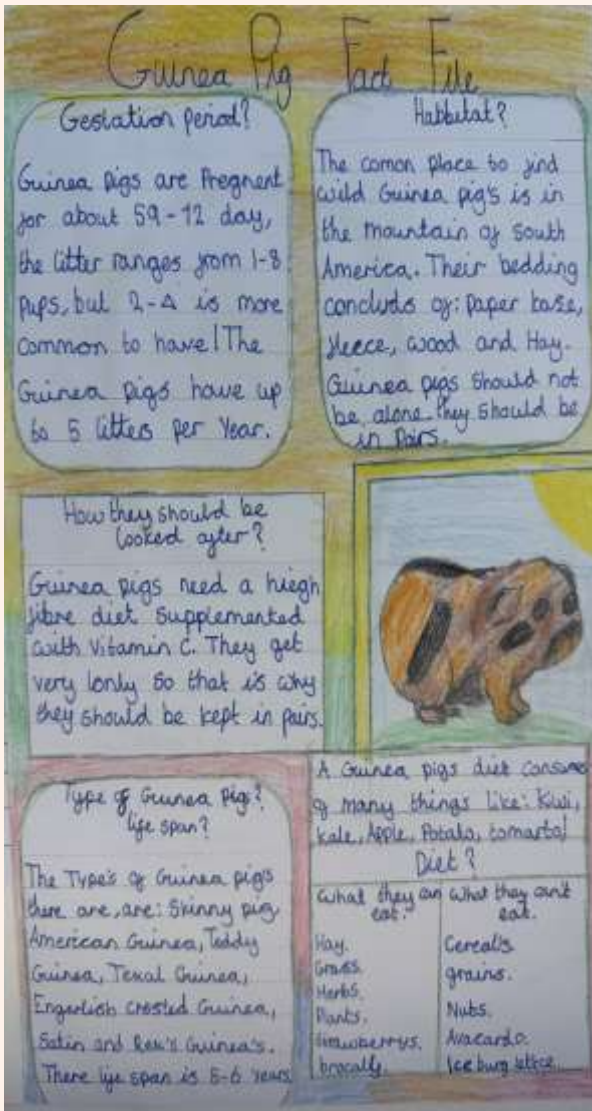 Guinea Pig Fact File
Gestation period?
Guinea pigs are Pregnent
for about 59-72 day,
the litter ranges from 1-8
pups, but 2-4 is more
common to have! The
Guinea pigs have up
to 5 litters per Year.
Habbitat?
The comon place to find
wild Guinea pig's is in
the mountain of south
America. Their bedding
concluds of: paper base,
fleece, wood and Hay.
Guinea pigs should not
be alone they should be
in Pairs.
How they should be
looked after?
Guinea pigs need a hiegh
fibre diet supplemented
with Vitamin C. They get
very lonly so that is why
they should be kept in pairs.
Type of Guinea pig?
life span?
The Type's of Guinea pigs
there are, are: Skinny pig,
American Guinea, Teddy
Guinea, Texal Guinea,
Engerlish crested Guinea,
Satin and Rex's Guinea's.
There life span is 5-6 years
A Guinea pigs diet consums
of many things like: Kiwi,
kale, Apple, Potato, tomarto!
Diet?
What they can
eat.
Hay.
Grass.
Herbs.
Plants.
Strawberrys.
brocally.
What they can't
eat.
Cerealis
grains.
Nuts.
Avacardo.
Ice burg lettce.